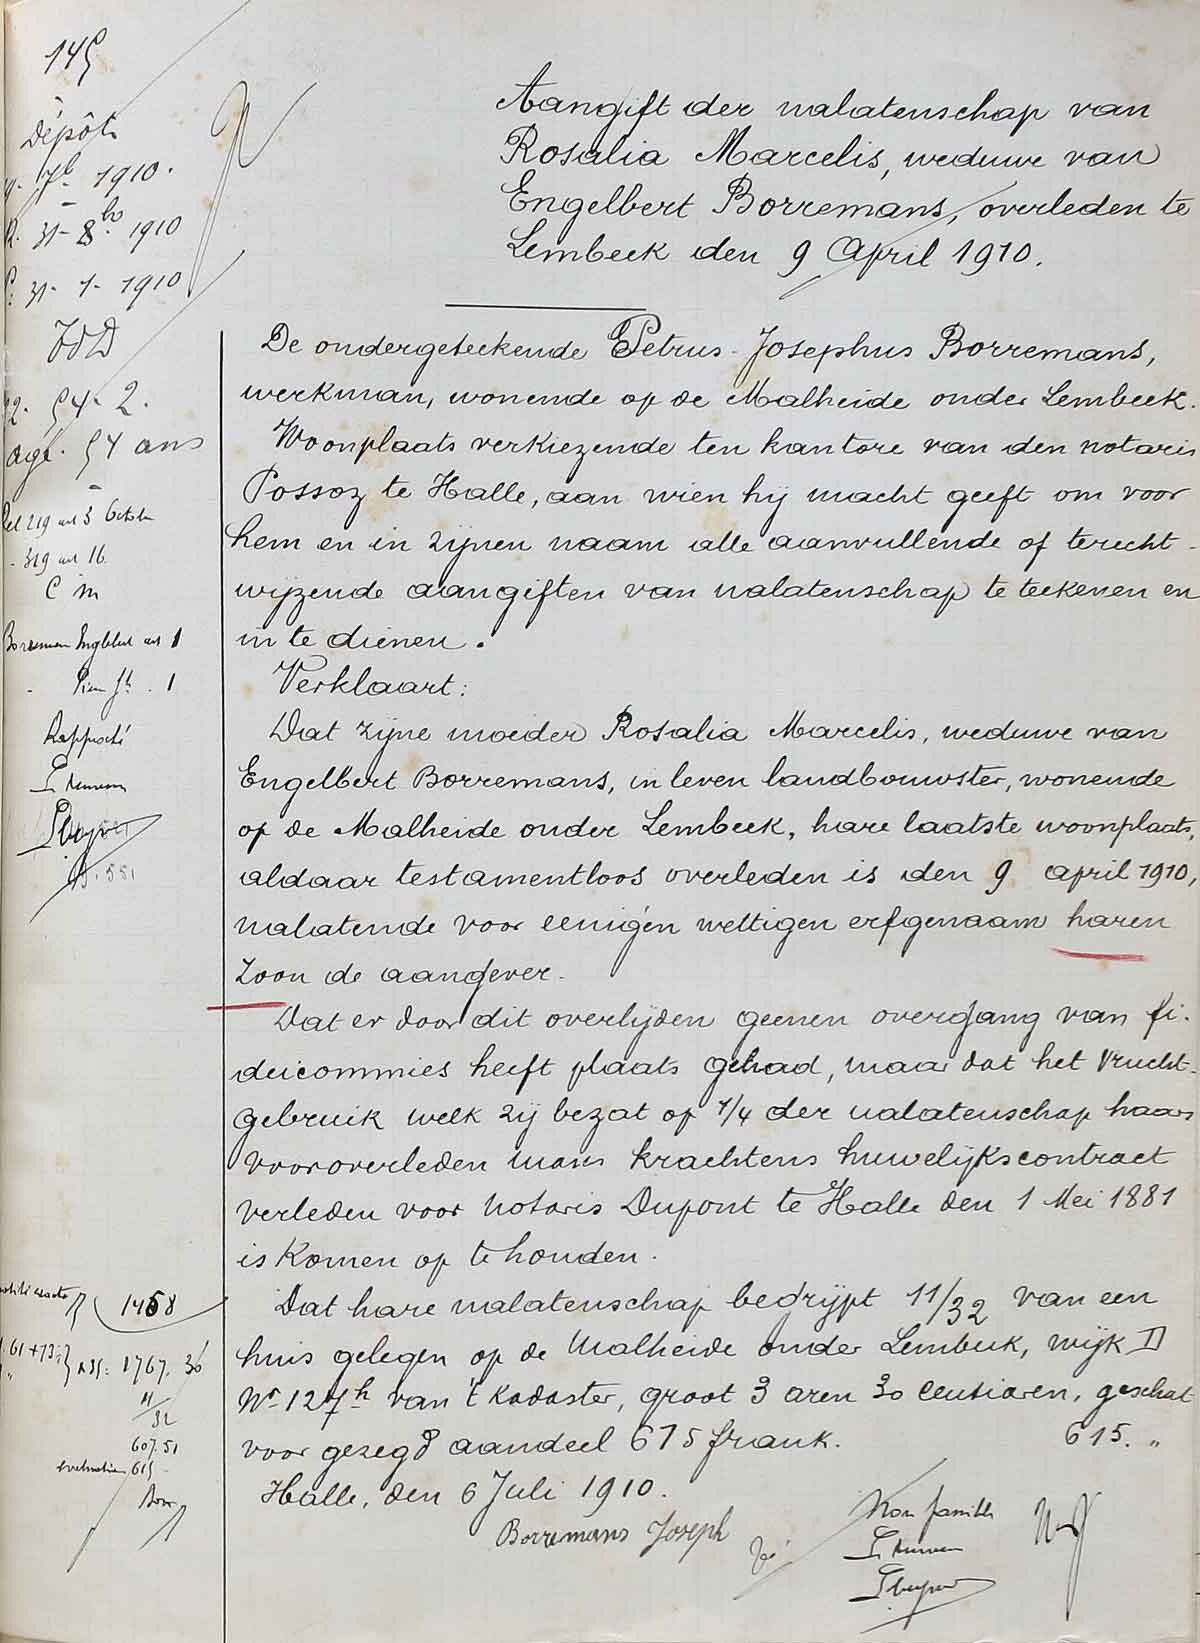 145
Dépôt
1910.
R. 31- 8bre 1910
31- 1- 1910
54. 2.
agé. 54 ans
219 art 3
319 art 16
C M
Borremans Englebert art 1
Pierre Jh. 1
Aangift der nalatenschap van
Rosalia Marcelis, weduwe van
Engelbert Borremans, overleden te
Lembeek den 9 April 1910.
De ondergeteekende Petrus-Josephus Borremans,
werkman, wonende op de Malheide onder Lembeek.
Woonplaats verkiezende ten kantore van den notaris
Possoz te Halle, aan wien hij macht geeft om voor
hem en in zijnen naam alle aanvullende of terecht-
wijzende aangiften van nalatenschap te teekenen en
in te dienen.
Verklaart:
Dat zijne moeder Rosalia Marcelis, weduwe van
Engelbert Borremans, in leven landbouwster, wonende
op de Malheide onder Lembeek, hare laatste woonplaats,
aldaar testamentloos overleden is den 9 april 1910,
nalatende voor eenigen wettigen erfgenaam haren
zoon de aangever.
Dat er door dit overlijden geenen overgang van fi-
deicommies heeft plaats gehad, maar dat het vrucht-
gebruik welk zij bezat op 1/4 der nalatenschap haars
vooroverleden mans krachtens huwelijkscontract
verleden voor notaris Dupont te Halle den 1 Mei 1881
is komen op te houden.
Dat hare nalatenschap begrijpt 11/32 van een
huis gelegen op de Malheide onder Lembeek, wijk D
Nr 127h van 't kadaster, groot 3 aren 30 centiaren, geschat
voor gezegd aandeel 615 frank. 615. "
Halle, den 6 Juli 1910.
Borremans Joseph
1458
1767.36
11/32
607.51
615